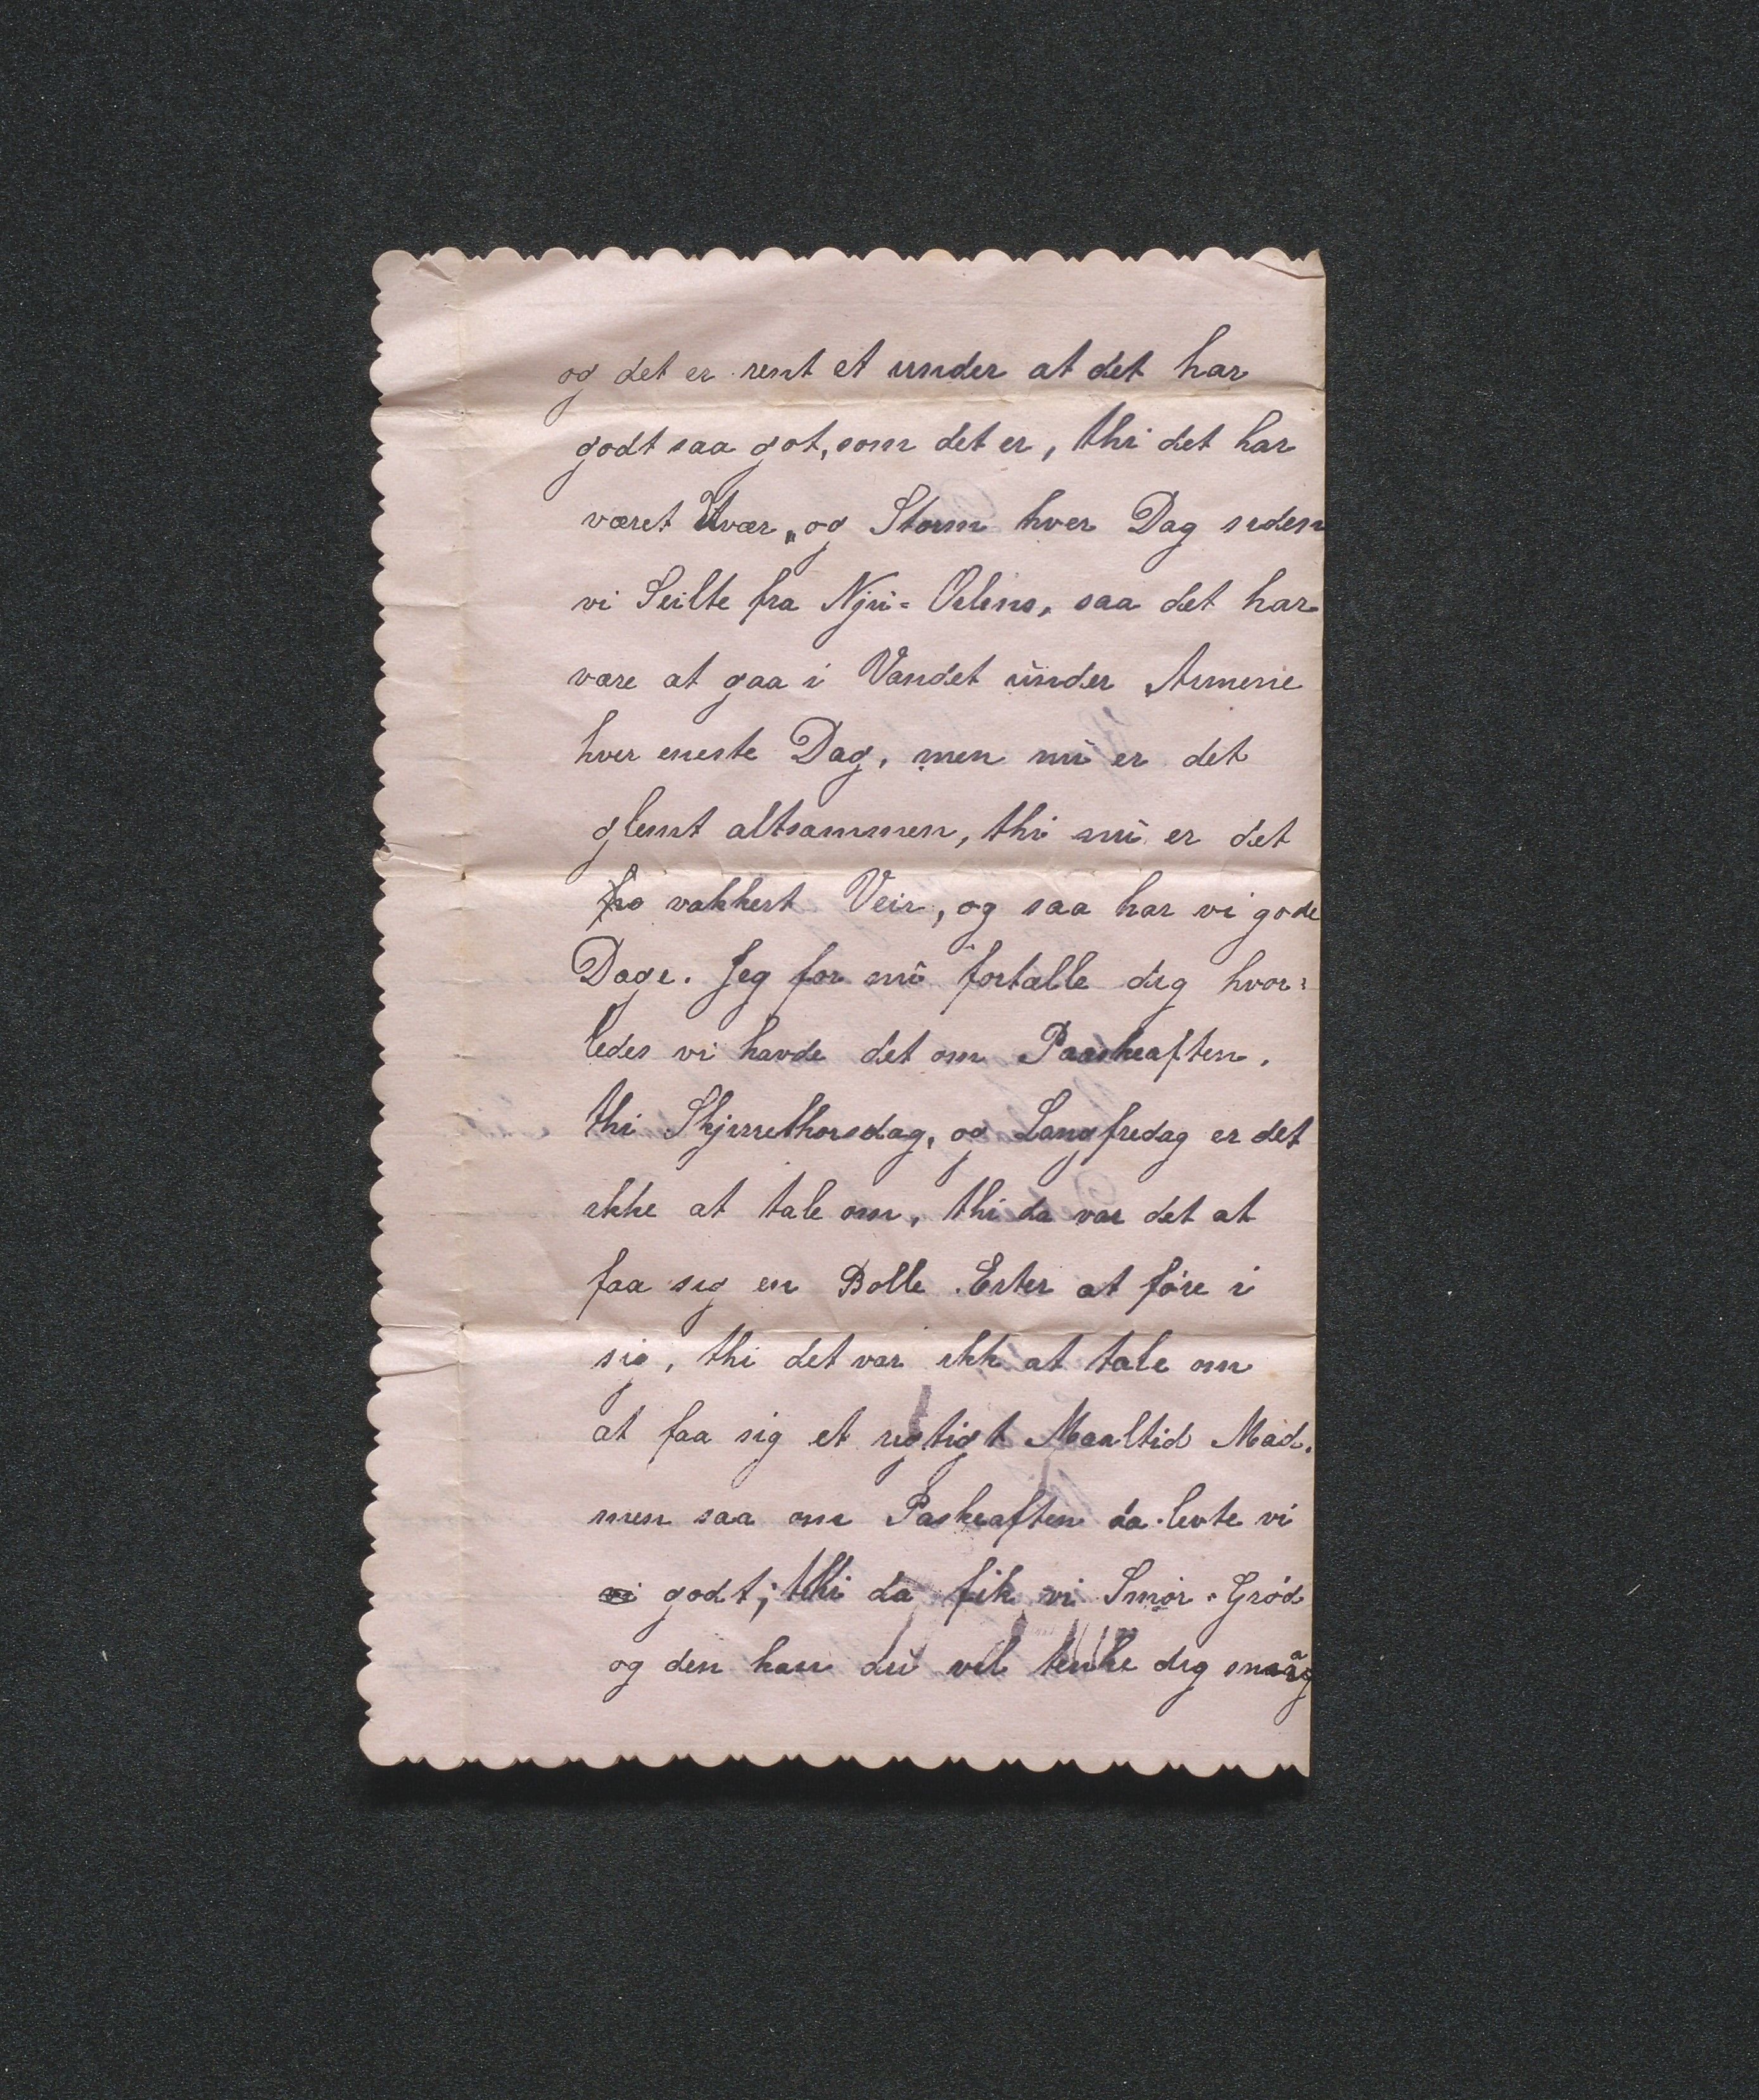 og det er rent et under at det har
godt saa got, som det er, thi det har
været Uvær, og Storm hver Dag siden
vi Seilte fra Nju=Orlens, saa det har
være at gaa i Vandet under Armene
hver eneste Dag, men nu er det
glemt altsammen, thi nu er det
vakkert Veir, og saa har vi gode
Dage. Jeg for nu fortælle dig hvor=
ledes vi havde det om Paaskeaften,
thi Skjærethorsdag, og Langfredag er det
ikke at tale om, thi da var det at
faa sig en Bolle Erter at føre i
sig, thi det var ikk at tale om
at faa sig et rigtigt Maaltid Mad,
men saa om Paskeaften da levte vi
vi godt; thi da fik vi Smør-Grød
og den kan du vel tenke dig smag